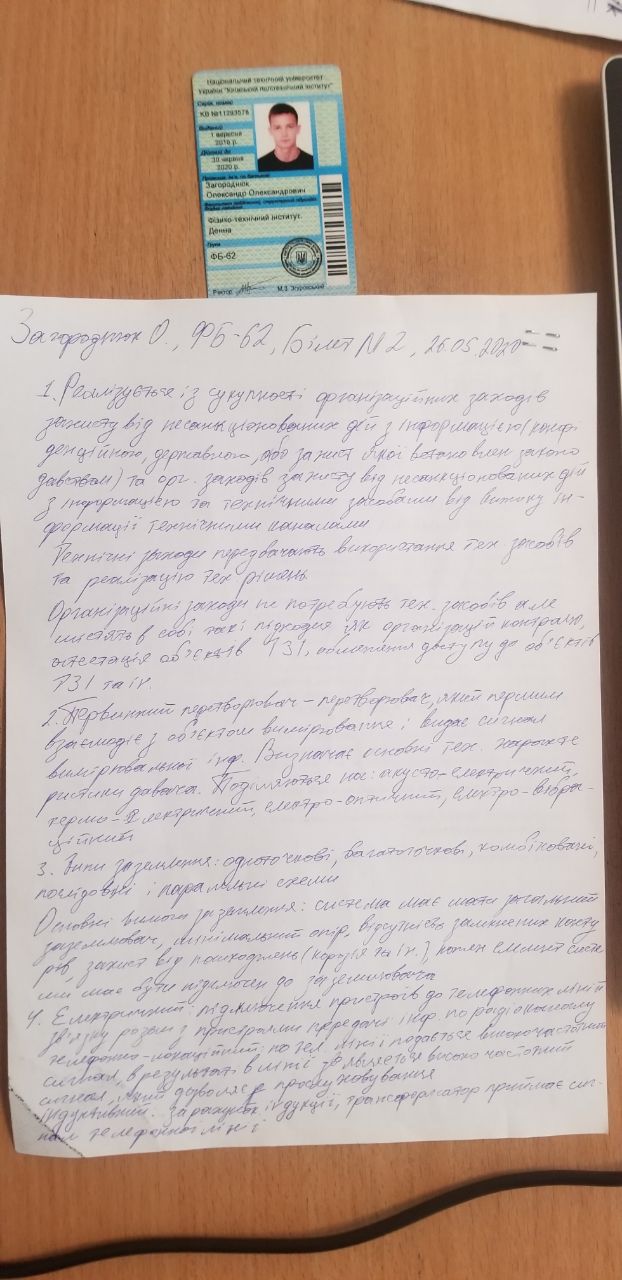 Національний технічний університет
України "Київський політехнічний інститут"
Серія, номер
КВ №11293578
Виданий
1 вересня
2016 р.
Дійсний до
30 червня
2020 р.
Прізвище, ім'я, по батькові
Загороднюк
Олександр Олександрович
Фізико-технічний інститут.
Денна
Група
ФБ-62
Ректор М.З. Згуровський
Загороднюк О., ФБ-62, Білет №2, 26.05.2020
1. Реалізується із сукупності організаційних заходів
захисту від несанкціонованих дій з інформацією (конфі
денційною, державною, або захист якої встановлен законо
давством) та орг. заходів захисту від несанкціонованих дій
з інформацією та технічними засобами від витоку ін-
формації технічними каналами
Технічні заходи передбачають використання тех засобів
та реалізацію тех рішень
Організаційні заходи не потребують тех. засобів але
містять в собі такі підходи як організація контролю,
атестація об'єктів ТЗІ, обмеження доступу до об'єктів
ТЗІ та ін.
2. Первинний перетворювач – перетворювач, який першим
взаємодіє з об'єктом вимірювання і видає сигнал
вимірювальної інф. Визначає основні тех. характе
ристики давача. Поділяються на: акусто-електричний,
термо-електричний, електро-оптичний, електро-вібра-
ційний
3. Види заземлення: одноточкові, багатоточкові, комбіновані,
послідовні і паралельні схеми
Основні вимоги заземлення: система має мати загальний
заземлювач, мінімальний опір, відсутність замкнених конту
рів, захист від пошкоджень (корозія та ін.), кожен елемент систе
ми має бути підключен до заземлювача
4. Електричний: підключення пристроїв до телефонних ліній
зв'язку разом з пристроями передачі інф. по радіоканалу
телефонно-локаційний: по тел лінії подається високочастотний
сигнал, в результаті в лінії з'являється високо частотний
сигнал, який дозволяє прослуховування
індуктивний: за рахунок індукції, трансформатор приймає сиг-
нал телефонної лінії